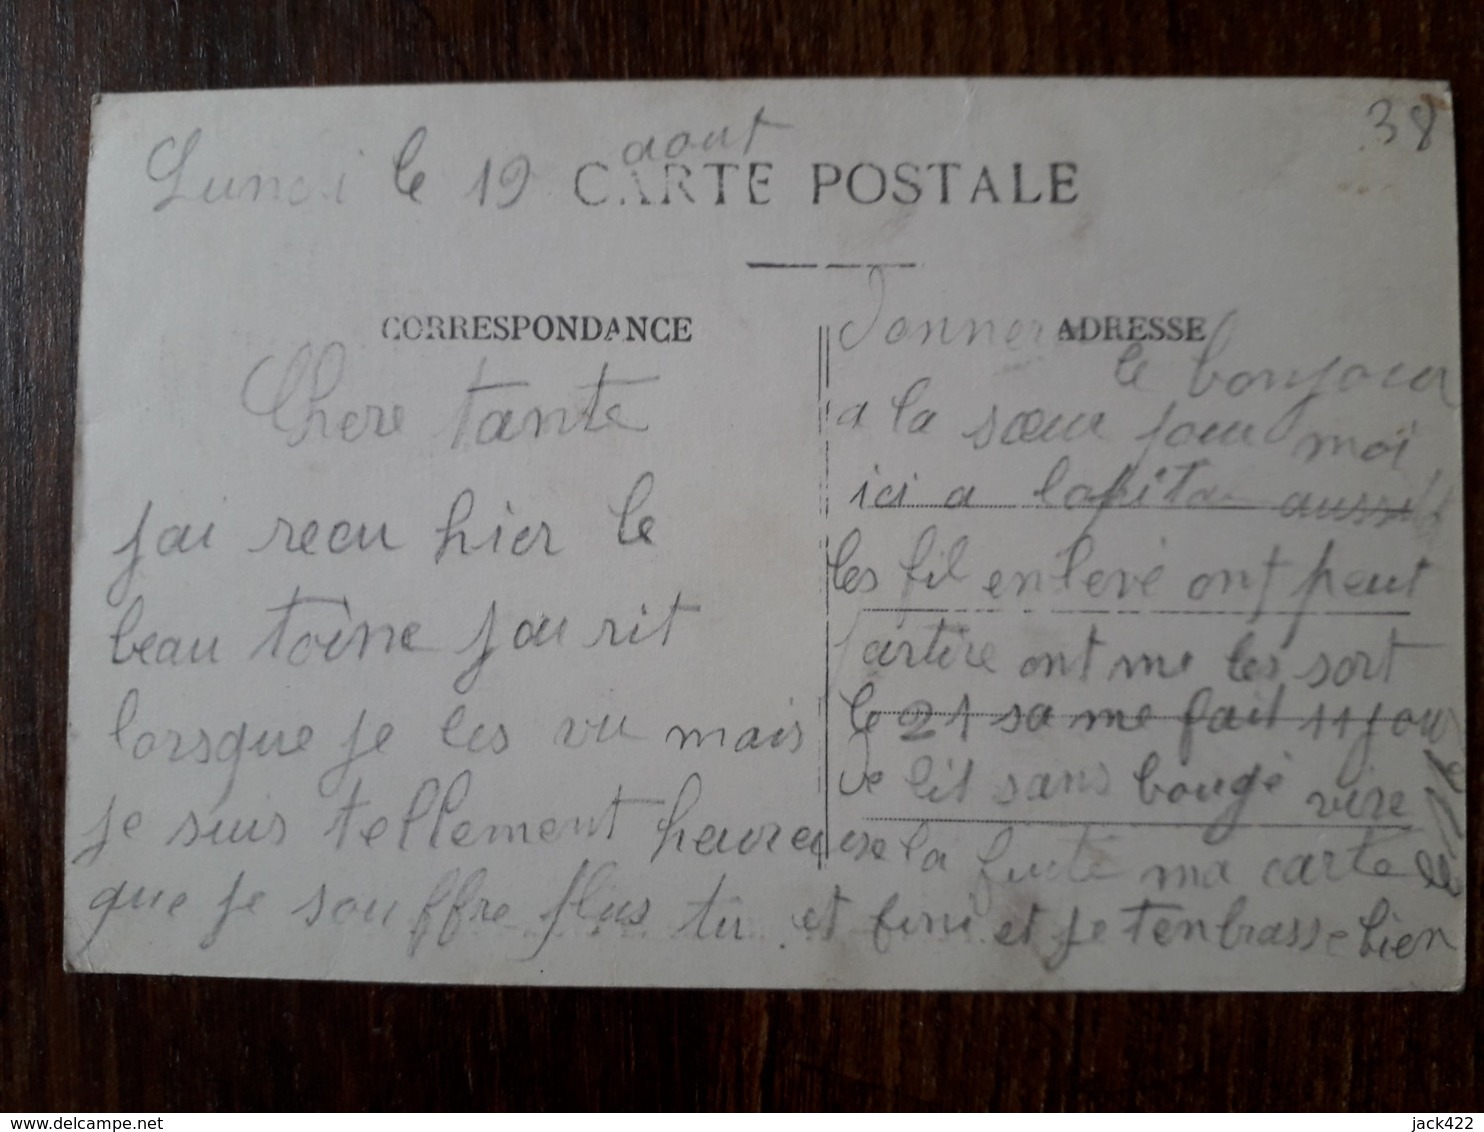 38
aout
Lundi le 19 CARTE POSTALE
CORRESPONDANCE
Chere tante
jai recu hier le
beau toine jai rit
lorsque je les vu mais
je suis tellement heureuse
que je souffre plus tu
ADRESSE
Donner
le bonjour
a la sœur pour moi
ici a lopital aussi
les fil enlevé ont peut
partire ont me les sort
le 21 sa me fait 11 jour
de lit sans bougé vire
la ma carte
et fini et je tenbrasse bien
delcampe.net
jack422